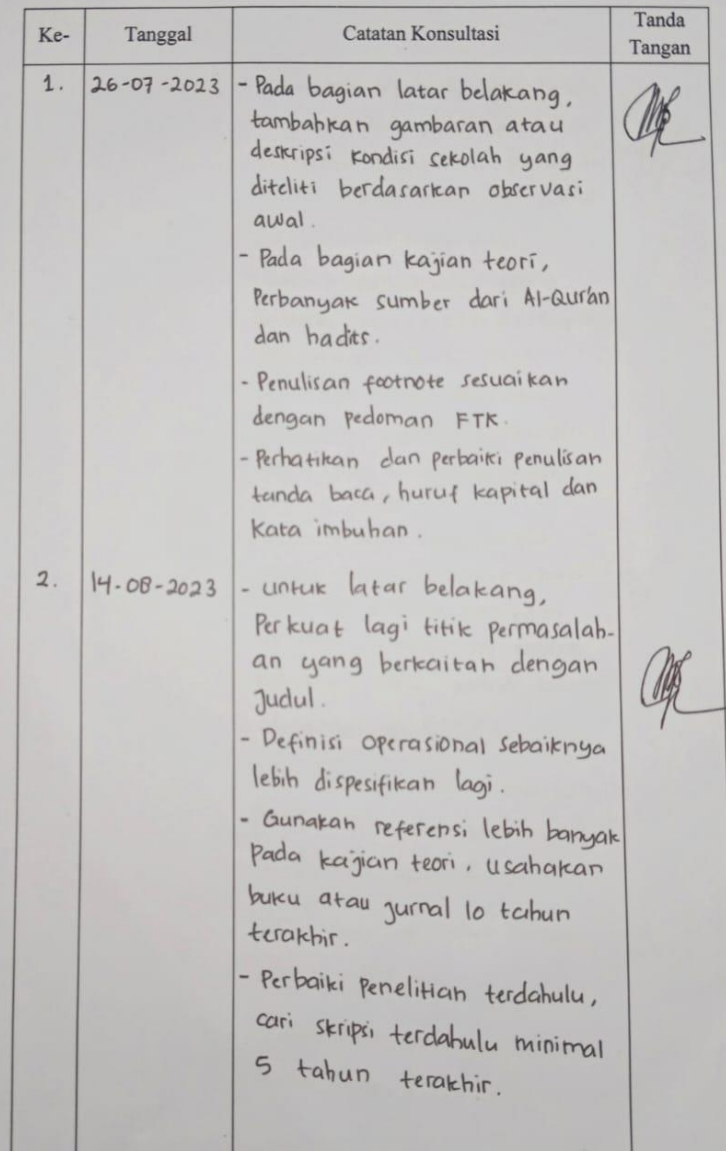 Ke- Tanggal Catatan Konsultasi Tanda Tangan
1. 26-07-2023 - Pada bagian latar belakang,
tambahkan gambaran atau
deskripsi kondisi sekolah yang
diteliti berdasarkan observasi
awal.
- Pada bagian kajian teori,
Perbanyak sumber dari Al-Qur'an
dan hadits.
- Penulisan footnote sesuaikan
dengan pedoman FTK.
- Perhatikan dan perbaiki penulisan
tanda baca, huruf kapital dan
kata imbuhan.
2. 14-08-2023 - untuk latar belakang,
Perkuat lagi titik permasalah-
an yang berkaitan dengan
Judul.
- Definisi operasional sebaiknya
lebih dispesifikan lagi.
- Gunakan referensi lebih banyak
Pada kajian teori, usahakan
buku atau jurnal 10 tahun
terakhir.
- Perbaiki penelitian terdahulu,
cari skripsi terdahulu minimal
5 tahun terakhir.